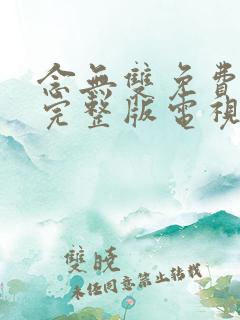 念無雙免費
完整版電視
雙曉
未經同意禁止轉載